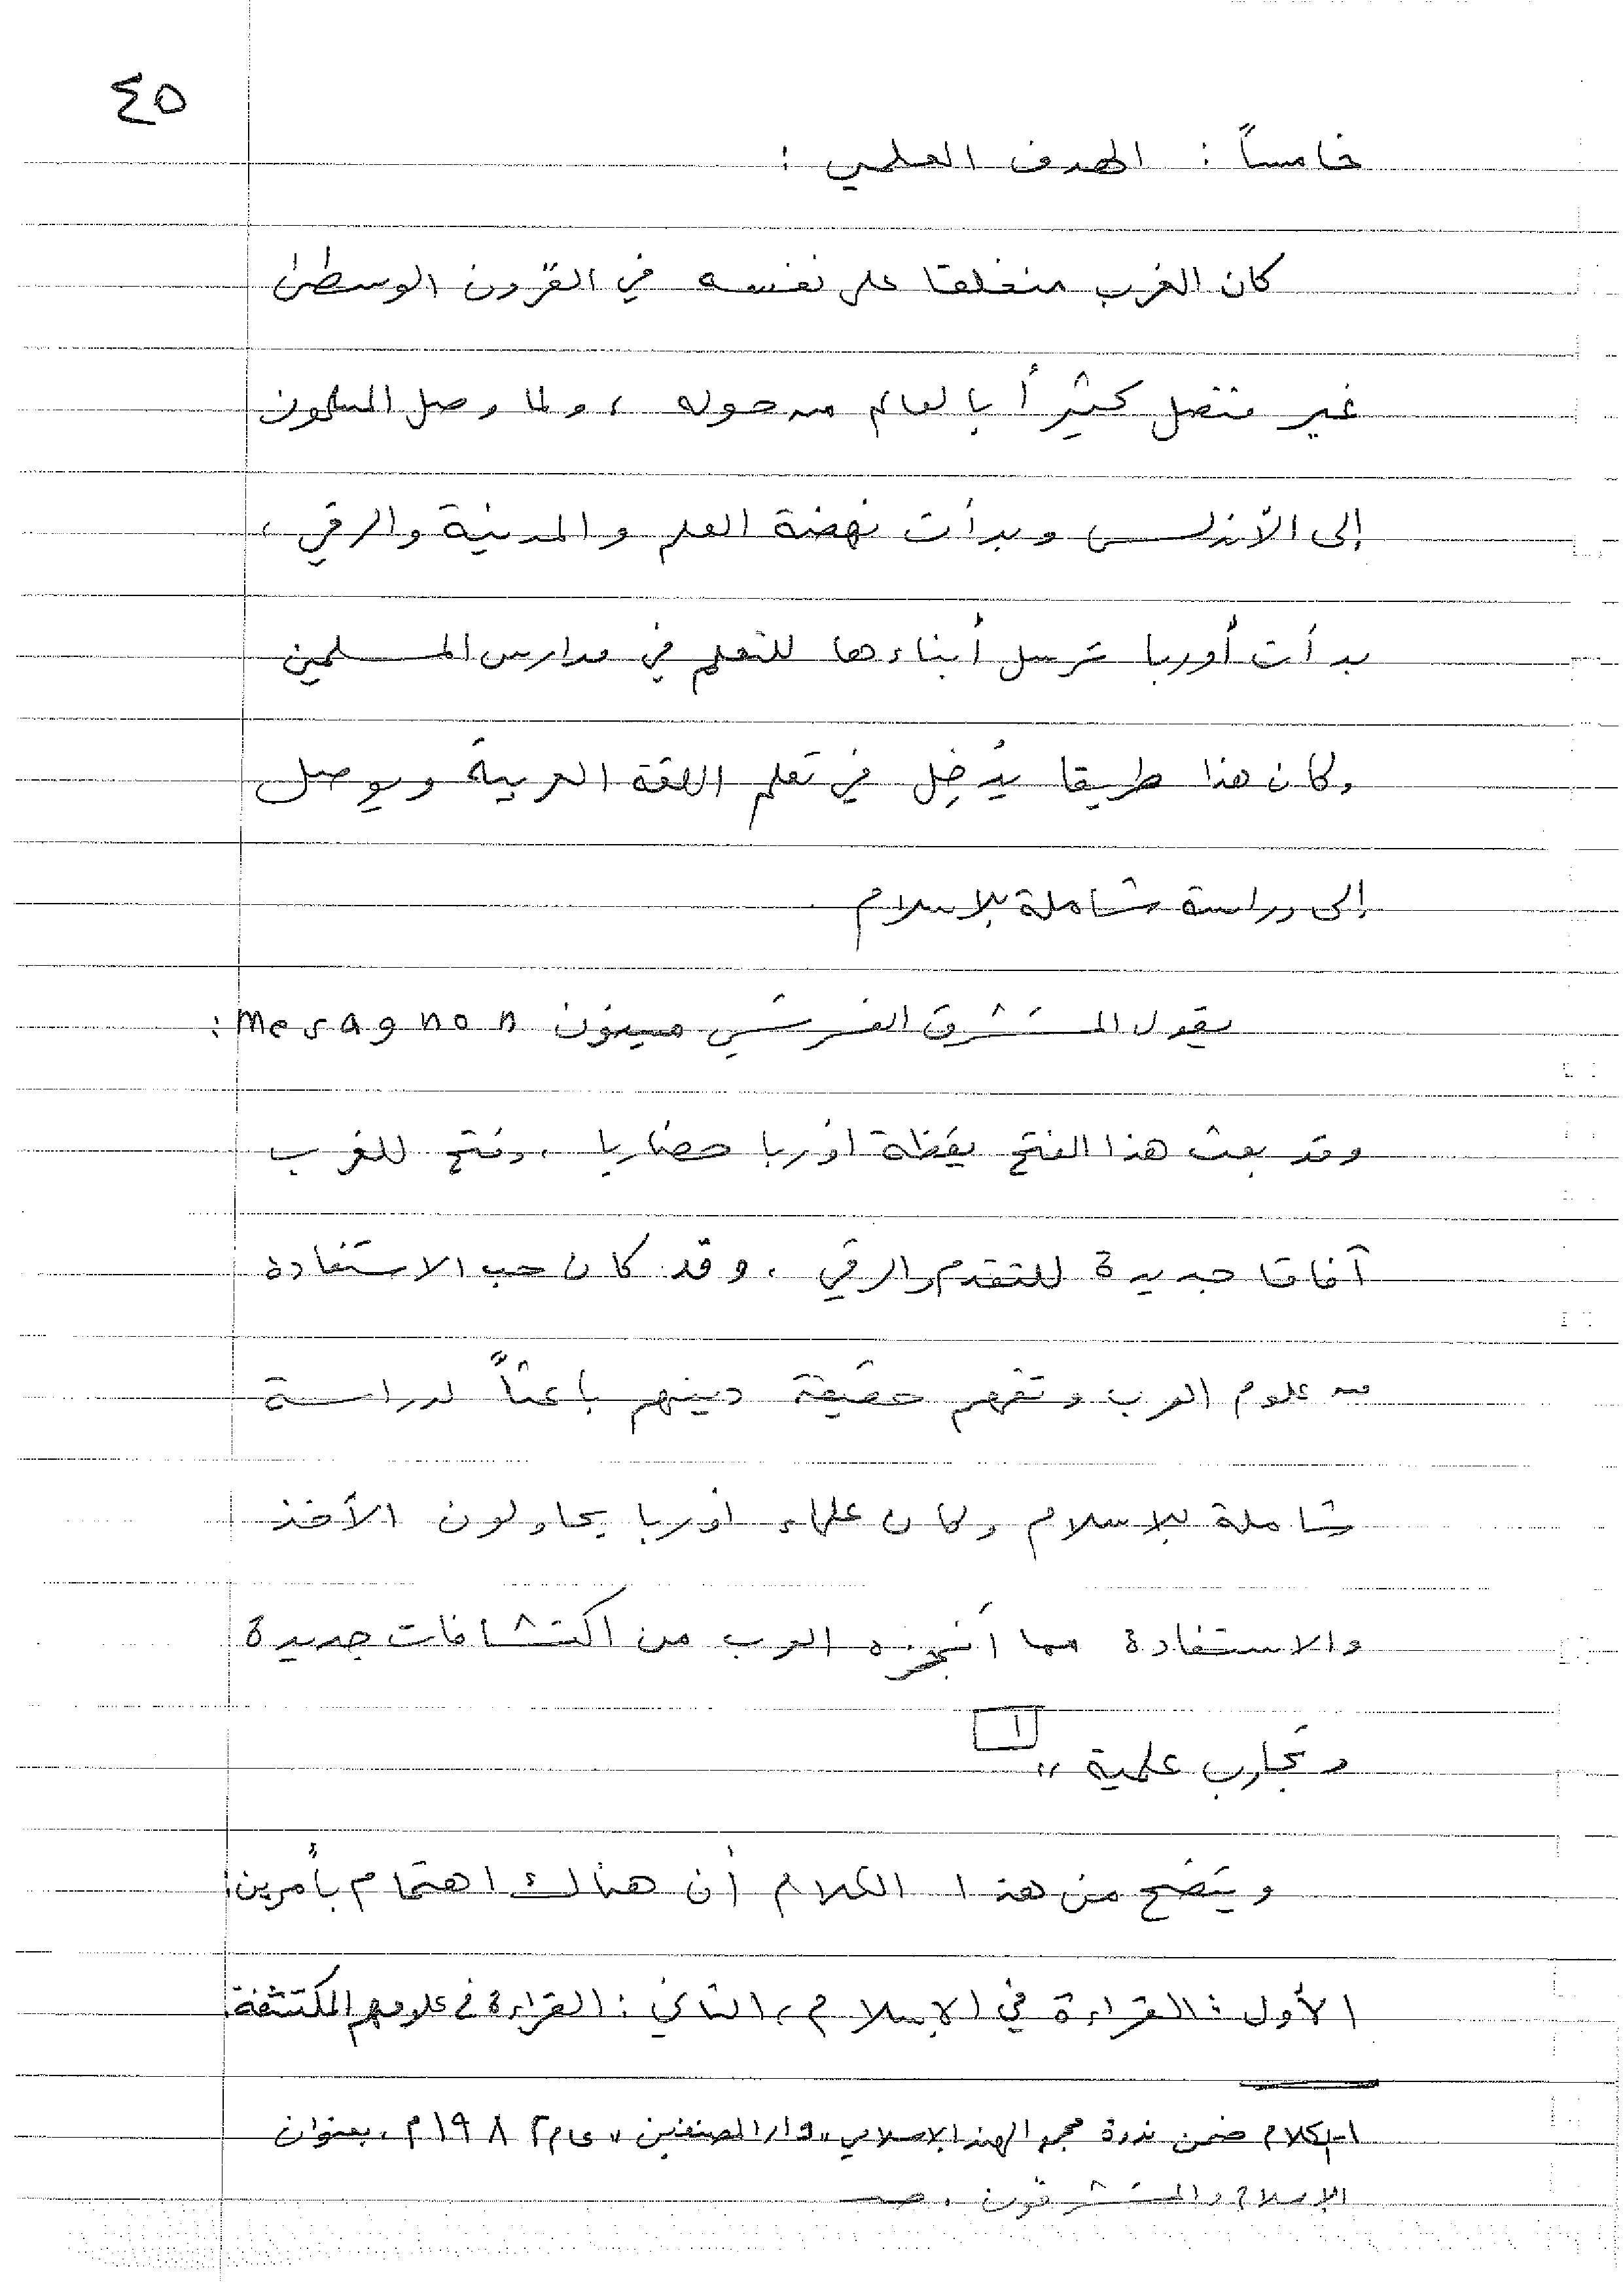 ٤٥
خامساً : الهدف العلمي :
كان الغرب منغلقا على نفسه في القرون الوسطى
غير متصل كثيراً بالعالم من حوله ، ولما وصل المسلمون
إلى الأندلس وبدأت نهضة العلم والمدنية والرقي ،
بدأت أوربا ترسل أبناءها للتعلم في مدارس المسلمين
وكان هذا طريقا يُدخِل في تعلم اللغة العربية ويوصل
إلى دراسة شاملة للإسلام
يقول المستشرق الفرنسي مسينون Mesagnon :
وقد بعث هذا الفتح يقظة اوربا حضاريا ، وفتح للغرب
آفاقا جديدة للتقدم والرقي ، وقد كان حب الاستفادة
من علوم العرب وتفهم حقيقة دينهم باعثاً لدراسة
شاملة للإسلام وكان علماء اوربا يحاولون الأخذ
والاستفادة مما أنجزه العرب من اكتشافات جديدة
وتجارب علمية " ١
ويتضح من هذا الكلام أن هناك اهتمام بأمرين:
الأول : القراءة في الإسلام ، الثاني : القراءة في علومهم المكتشفة.
١- الكلام ضمن ندوة مجمع الهند الإسلامي "دار المصنفين" عام ١٩٨٢م ، بعنوان
الإسلام والمستشرقون ، صـ